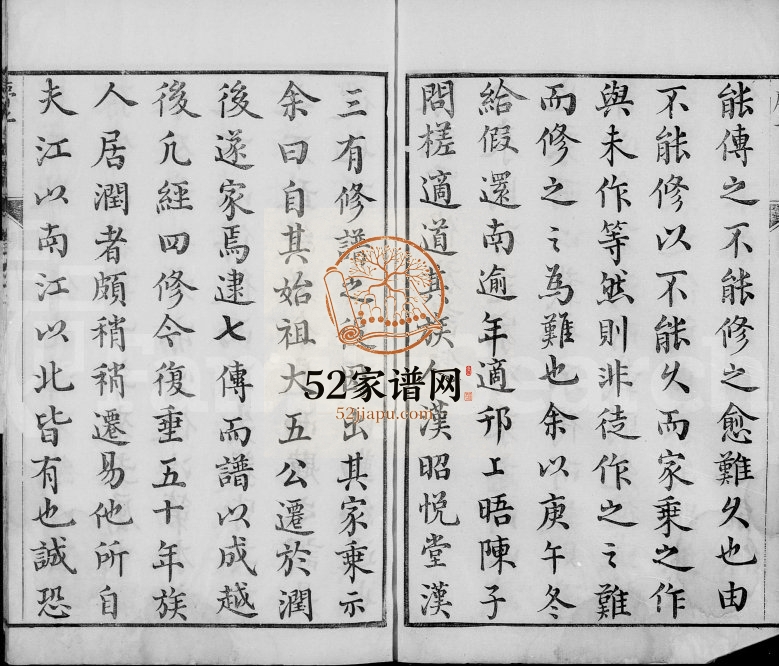 能傳之不能修之愈難久也由
不能修以不能久而家乗之作
與未作等然則非徒作之之難
而修之之為難也余以庚午冬
給假還南逾年適邗上晤陳子
問槎適道其族人漢昭悅堂漢
三有修譜之出其家乗示
余曰自其始祖大五公遷於潤
後遂家焉逮七傳而譜以成越
後凢經四修今復垂五十年族
人居潤者頗稍稍遷易他所自
夫江以南江以北皆有也誠恐
52家谱网
52jiapu.com